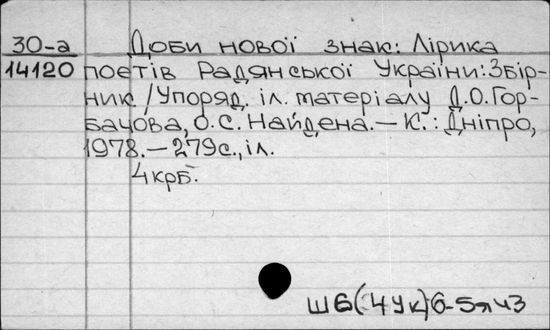 30-а Доби нової знак: Лірика
14120 поетів Радянської України: Збір-
ник / Упоряд. іл. матеріалу Д.О. Гор-
бачова, О.С. Найдена. — К.: Дніпро,
1978. — 279с., іл.
4крб.
Ш6(4Ук)6-5я43